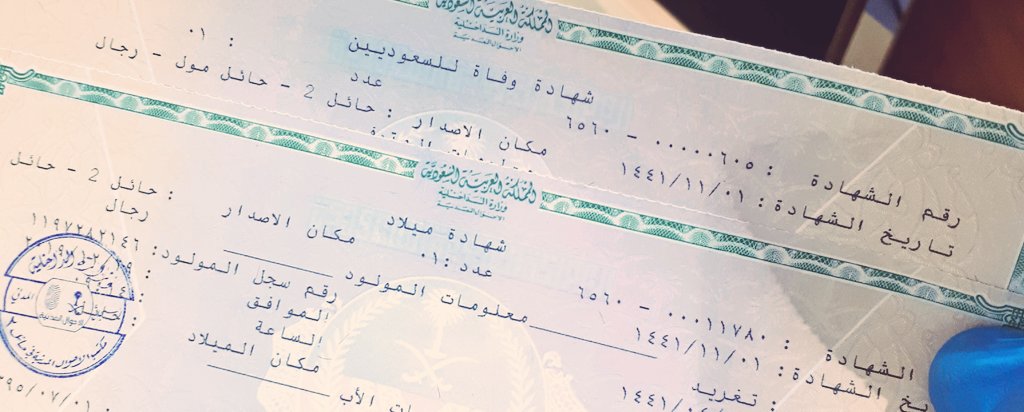 المملكة العربية السعودية
وزارة الداخلية
الأحوال المدنية
شهادة وفاة للسعوديين
عدد : ٠١
رقم الشهادة : ٠٠٠٠٠٦٠٥ - ٦٥٦٠
تاريخ الشهادة : ١٤٤١/١١/٠١ مكان الاصدار : حائل 2 - حائل مول - رجال
المملكة العربية السعودية
وزارة الداخلية
الأحوال المدنية
شهادة ميلاد
عدد : ٠١
الشهادة : ٠٠٠١١٧٨٠ - ٦٥٦٠
الشهادة : ١٤٤١/١١/٠١ مكان الاصدار : حائل 2 - حائل
رجال
معلومات المولود
: تغريد رقم سجل المولود : ١١٩٧٢٨٢١٤٦
الموافق :
الساعة :
مكان الميلاد
الأب
٣٩٥/٠٧/٠١